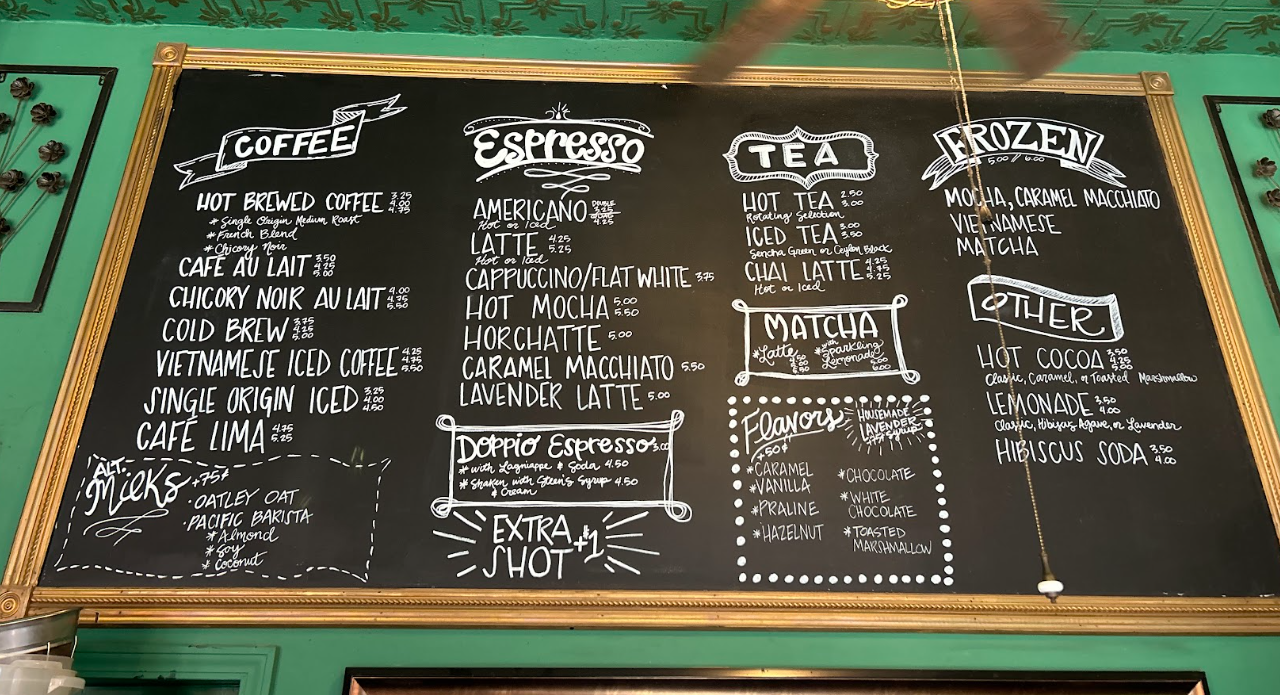 COFFEE
HOT BREWED COFFEE 3.25 4.00 4.75
* Single Origin Medium Roast
* French Blend
* Chicory Noir
CAFÉ AU LAIT 3.50 4.25 5.00
CHICORY NOIR AU LAIT 4.00 4.75 5.50
COLD BREW 3.75 4.25 5.00
VIETNAMESE ICED COFFEE 4.25 4.75 5.50
SINGLE ORIGIN ICED 3.25 4.00 4.50
CAFÉ LIMA 4.75 5.25
ALT. Milks +75¢
· OATLEY OAT
· PACIFIC BARISTA
* Almond
* Soy
* Coconut
Espresso
AMERICANO DOUBLE 3.25 4.25
Hot or Iced
LATTE 4.25 5.25
Hot or Iced
CAPPUCCINO/FLAT WHITE 3.75
HOT MOCHA 5.00 5.50
HORCHATTE 5.00
CARAMEL MACCHIATO 5.50
LAVENDER LATTE 5.00
Doppio Espresso 3.00
* with Lagniappe & Soda 4.50
* Shaken with Steen's Syrup 4.50
& Cream
EXTRA
SHOT +$1
TEA
HOT TEA 2.50 3.00
Rotating Selection
ICED TEA 3.00 3.50
Sencha Green or Ceylon Black
CHAI LATTE 4.25 4.75 5.25
Hot or Iced
MATCHA
* Latte
* with Sparkling
Lemonade 5.00 6.00
Flavors +50¢
HOUSEMADE
LAVENDER
.75¢ Syrup
* CARAMEL
* VANILLA
* PRALINE
* HAZELNUT
* CHOCOLATE
* WHITE
CHOCOLATE
* TOASTED
MARSHMALLOW
FROZEN
5.00 // 6.00
MOCHA, CARAMEL MACCHIATO
VIETNAMESE
MATCHA
OTHER
HOT COCOA 3.50 4.25 5.00
Classic, Caramel, or Toasted Marshmallow
LEMONADE 3.50 4.00
Classic, Hibiscus Agave, or Lavender
HIBISCUS SODA 3.50 4.00